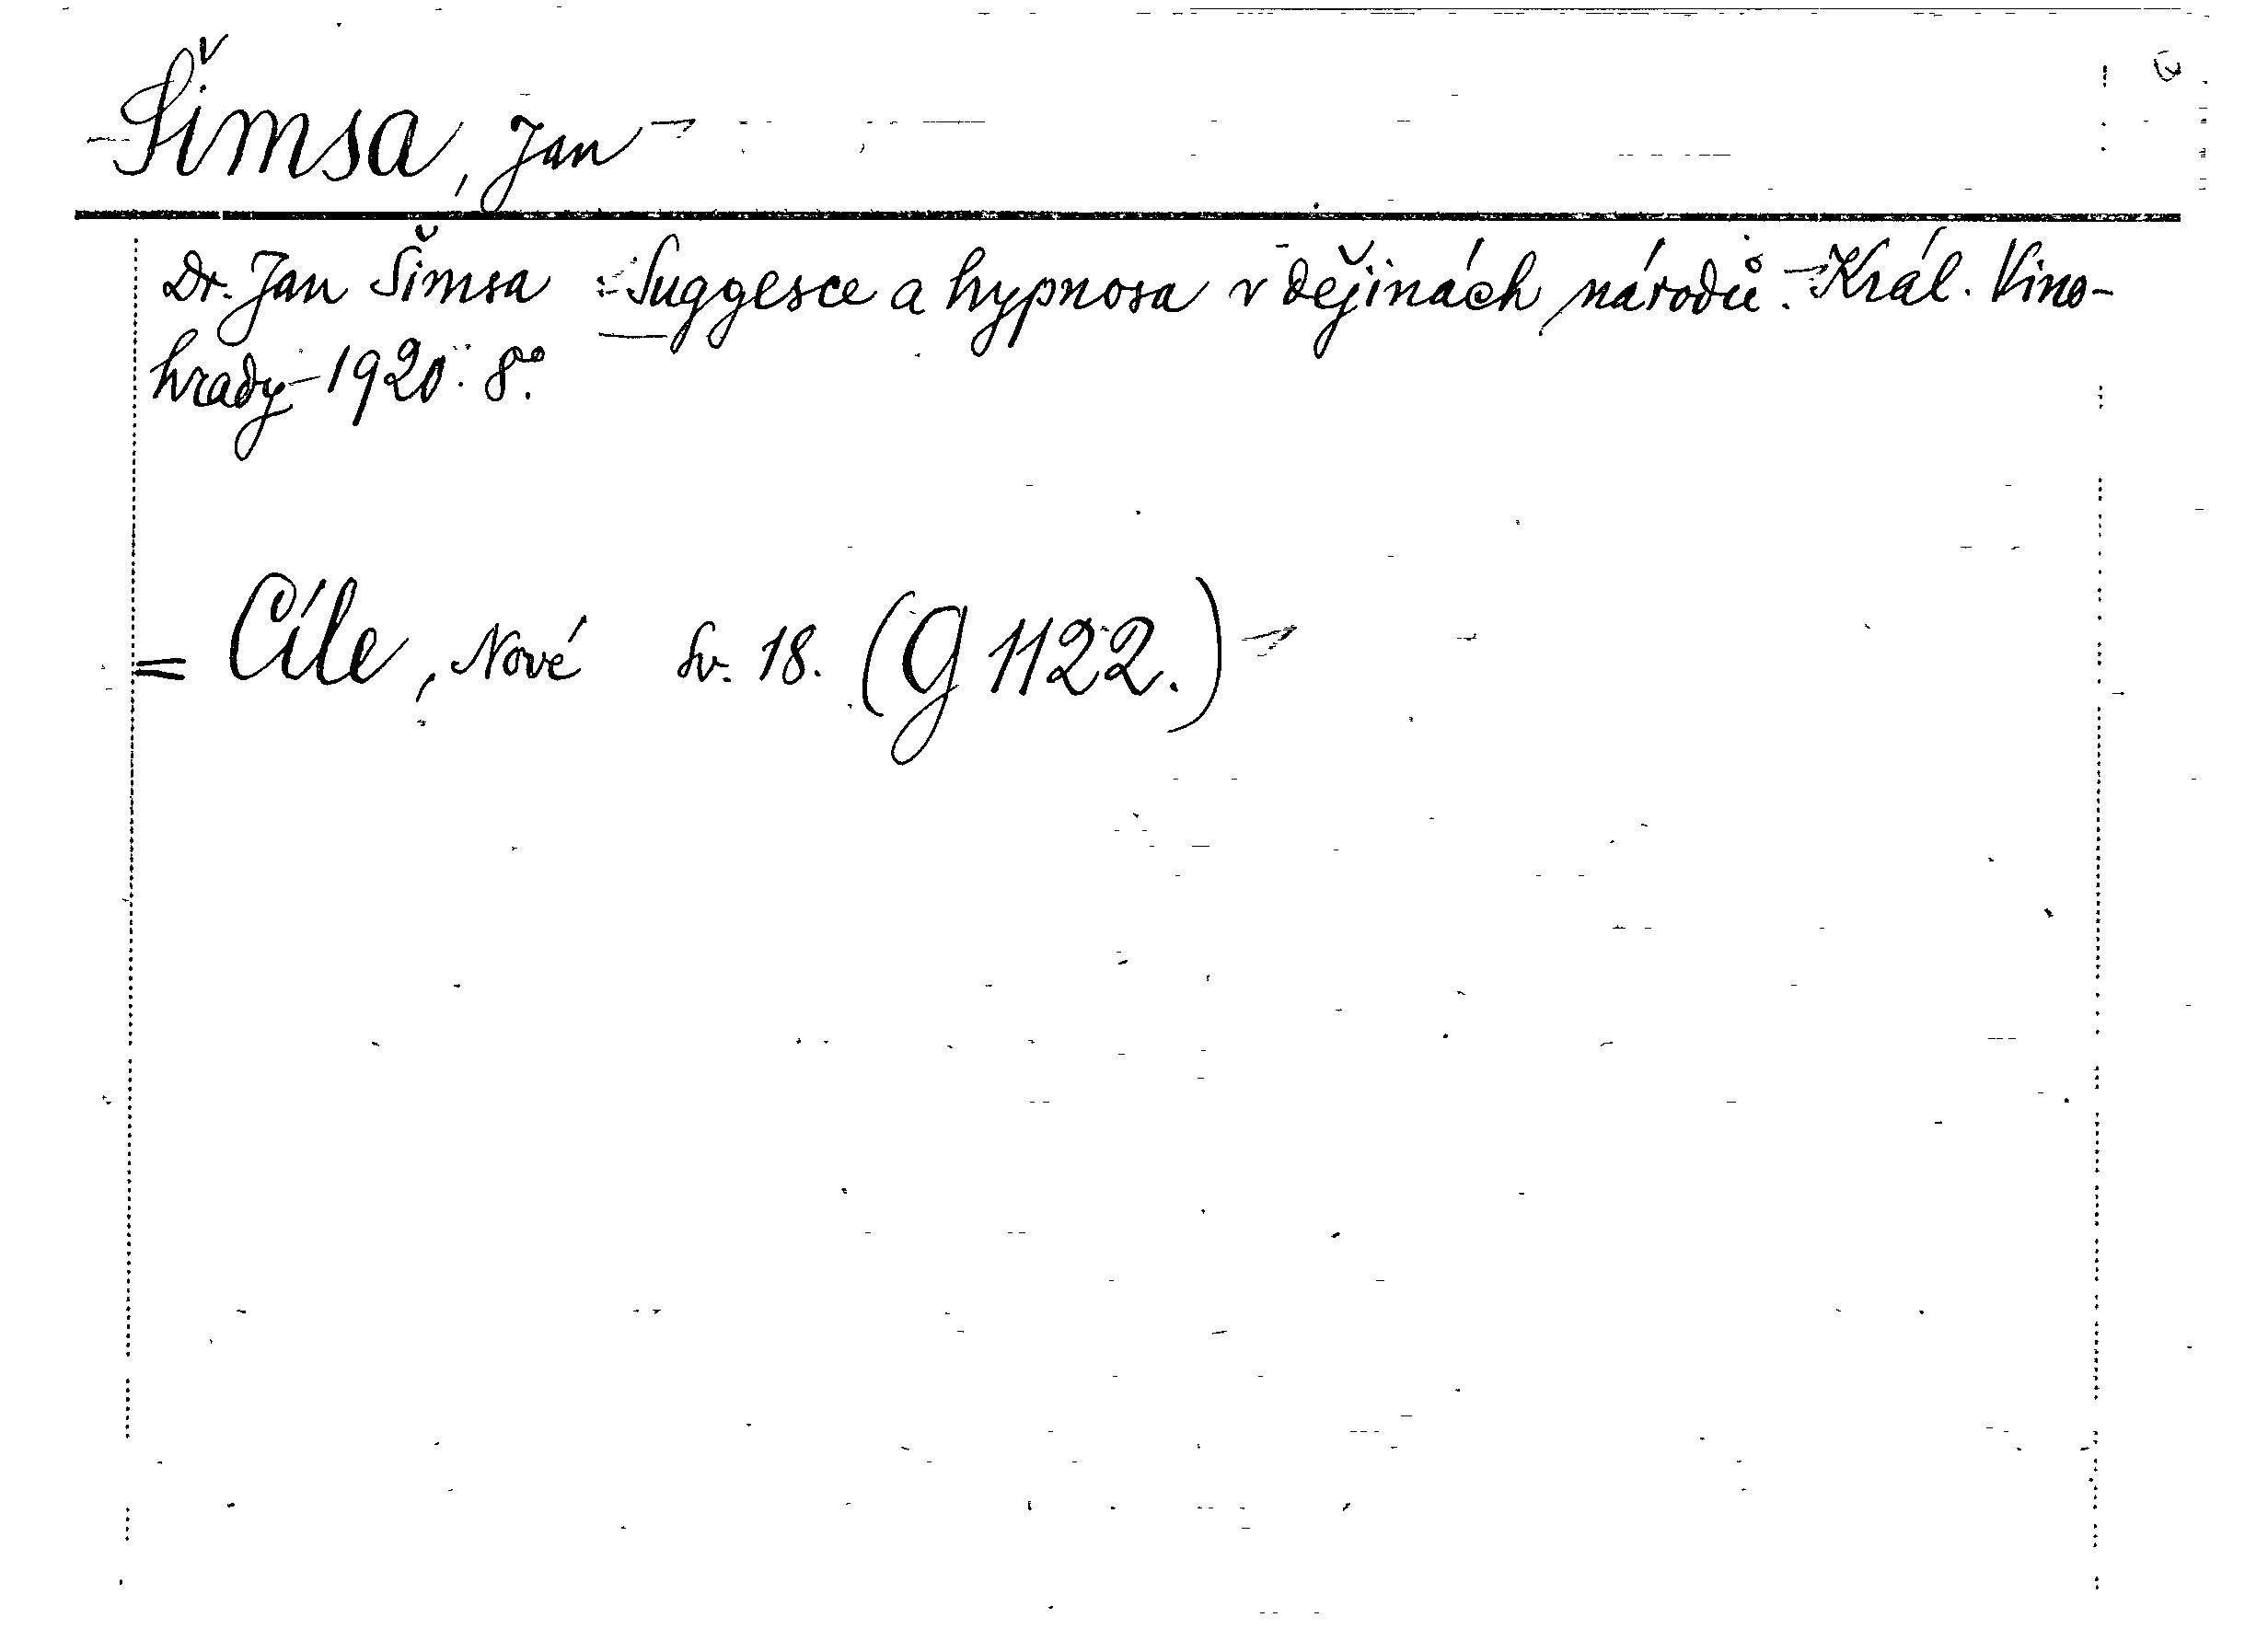 Šimsa, Jan
Dr. Jan Šimsa : Suggesce a hypnosa v dějinách národů. Král. Vino-
hrady 1920. 8°.
= Cíle, Nové Sv. 18. (G 1122.)